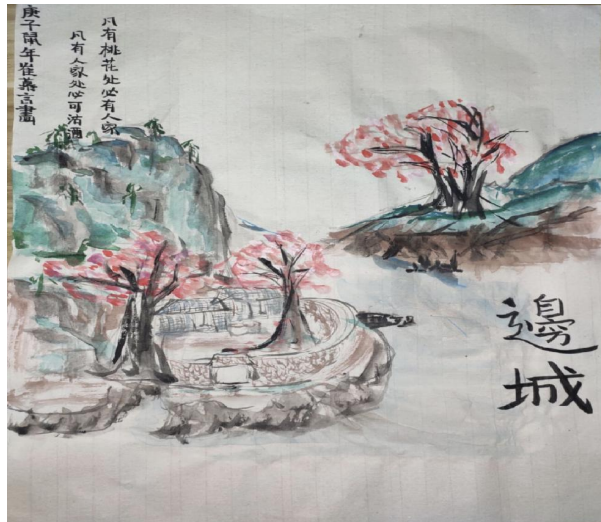 凡有桃花处必有人家
凡有人家处必可沽酒
庚子鼠年崔慕言畫
邊城